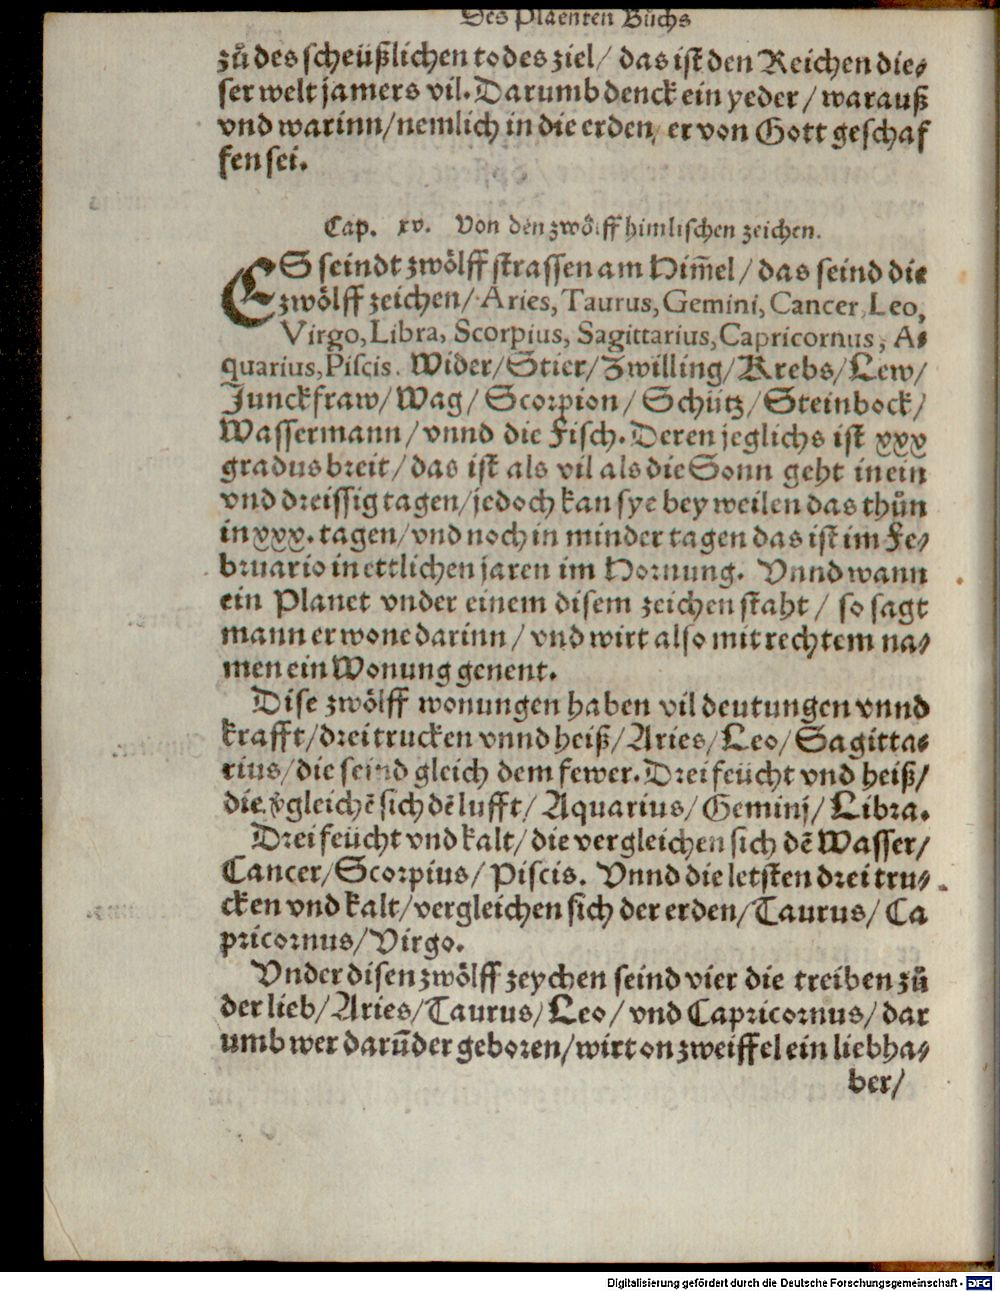 Des Plaenten Bůchs
zů des scheüßlichen todes ziel/ das ist den Reichen die⸗
ser welt jamers vil. Darumb denck ein yeder/ warauß
vnd warinn/ nemlich in die erden, er von Gott geschaf
fen sei.
Cap. xv. Von den zwölff himlischen zeichen.
ES seindt zwölff strassen am Him̄el/ das seind die
zwölff zeichen/ Aries, Taurus, Gemini, Cancer, Leo,
Virgo, Libra, Scorpius, Sagittarius, Capricornus, A⸗
quarius, Piscis. Wider/ Stier/ Zwilling/ Krebs/ Lew/
Junckfraw/ Wag/ Scorpion/ Schütz/ Steinbock/
Wassermann/ vnnd die Fisch. Deren jeglichs ist xxx
gradus breit/ das ist als vil als die Sonn geht in ein
vnd dreissig tagen/ jedoch kan sye bey weilen das thůn
in xxx. tagen/ vnd noch in minder tagen das ist im Fe⸗
bruario in ettlichen jaren im Hornung. Vnnd wann
ein Planet vnder einem disem zeichen staht/ so sagt
mann er wone darinn/ vnd wirt also mit rechtem na⸗
men ein Wonung genent.
Dise zwölff wonungen haben vil deutungen vnnd
krafft/ drei trucken vnnd heiß/ Aries/ Leo/ Sagitta⸗
rius/ die seind gleich dem fewer. Drei feücht vnd heiß/
die v̄gleichē sich dē lufft/ Aquarius/ Gemini/ Libra.
Drei feücht vnd kalt/ die vergleichen sich dē Wasser/
Cancer/ Scorpius/ Piscis. Vnnd die letsten drei tru⸗
cken vnd kalt/ vergleichen sich der erden/ Taurus/ Ca
pricornus/ Virgo.
Vnder disen zwölff zeychen seind vier die treiben zů
der lieb/ Aries/ Taurus/ Leo/ vnd Capricornus/ dar
umb wer darūder geboren/ wirt on zweiffel ein liebha⸗
ber/
Digitalisierung gefördert durch die Deutsche Forschungsgemeinschaft - DFG